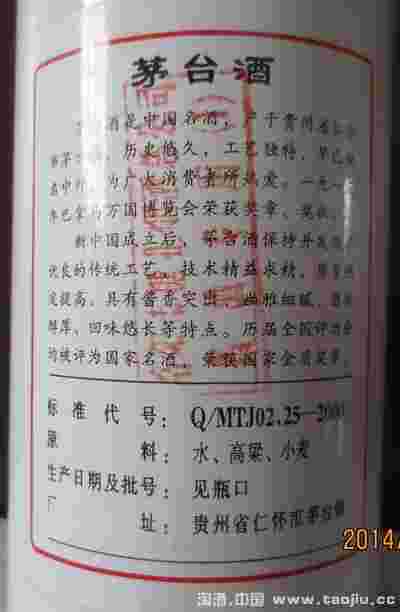 茅台酒
酒是中国名酒,产于贵州省
历史悠久,工艺独特,早已
名中外,为广大消费者所热爱。一九一
年巴拿马万国博览会荣获奖章、奖状
新中国成立后,茅台酒保持并发
优良的传统工艺,技术精益求精,
定提高,具有酱香突出、幽雅细腻、酒体
醇厚、回味悠长等特点。历届全国评酒会
均被评为国家名酒,荣获国家金质奖章。
标准代号:Q/MTJ02.25—
原料:水、高粱、小麦
生产日期及批号:见瓶口
厂址:贵州省仁怀市茅台镇
2014
淘酒.中国 www.taojiu.cc